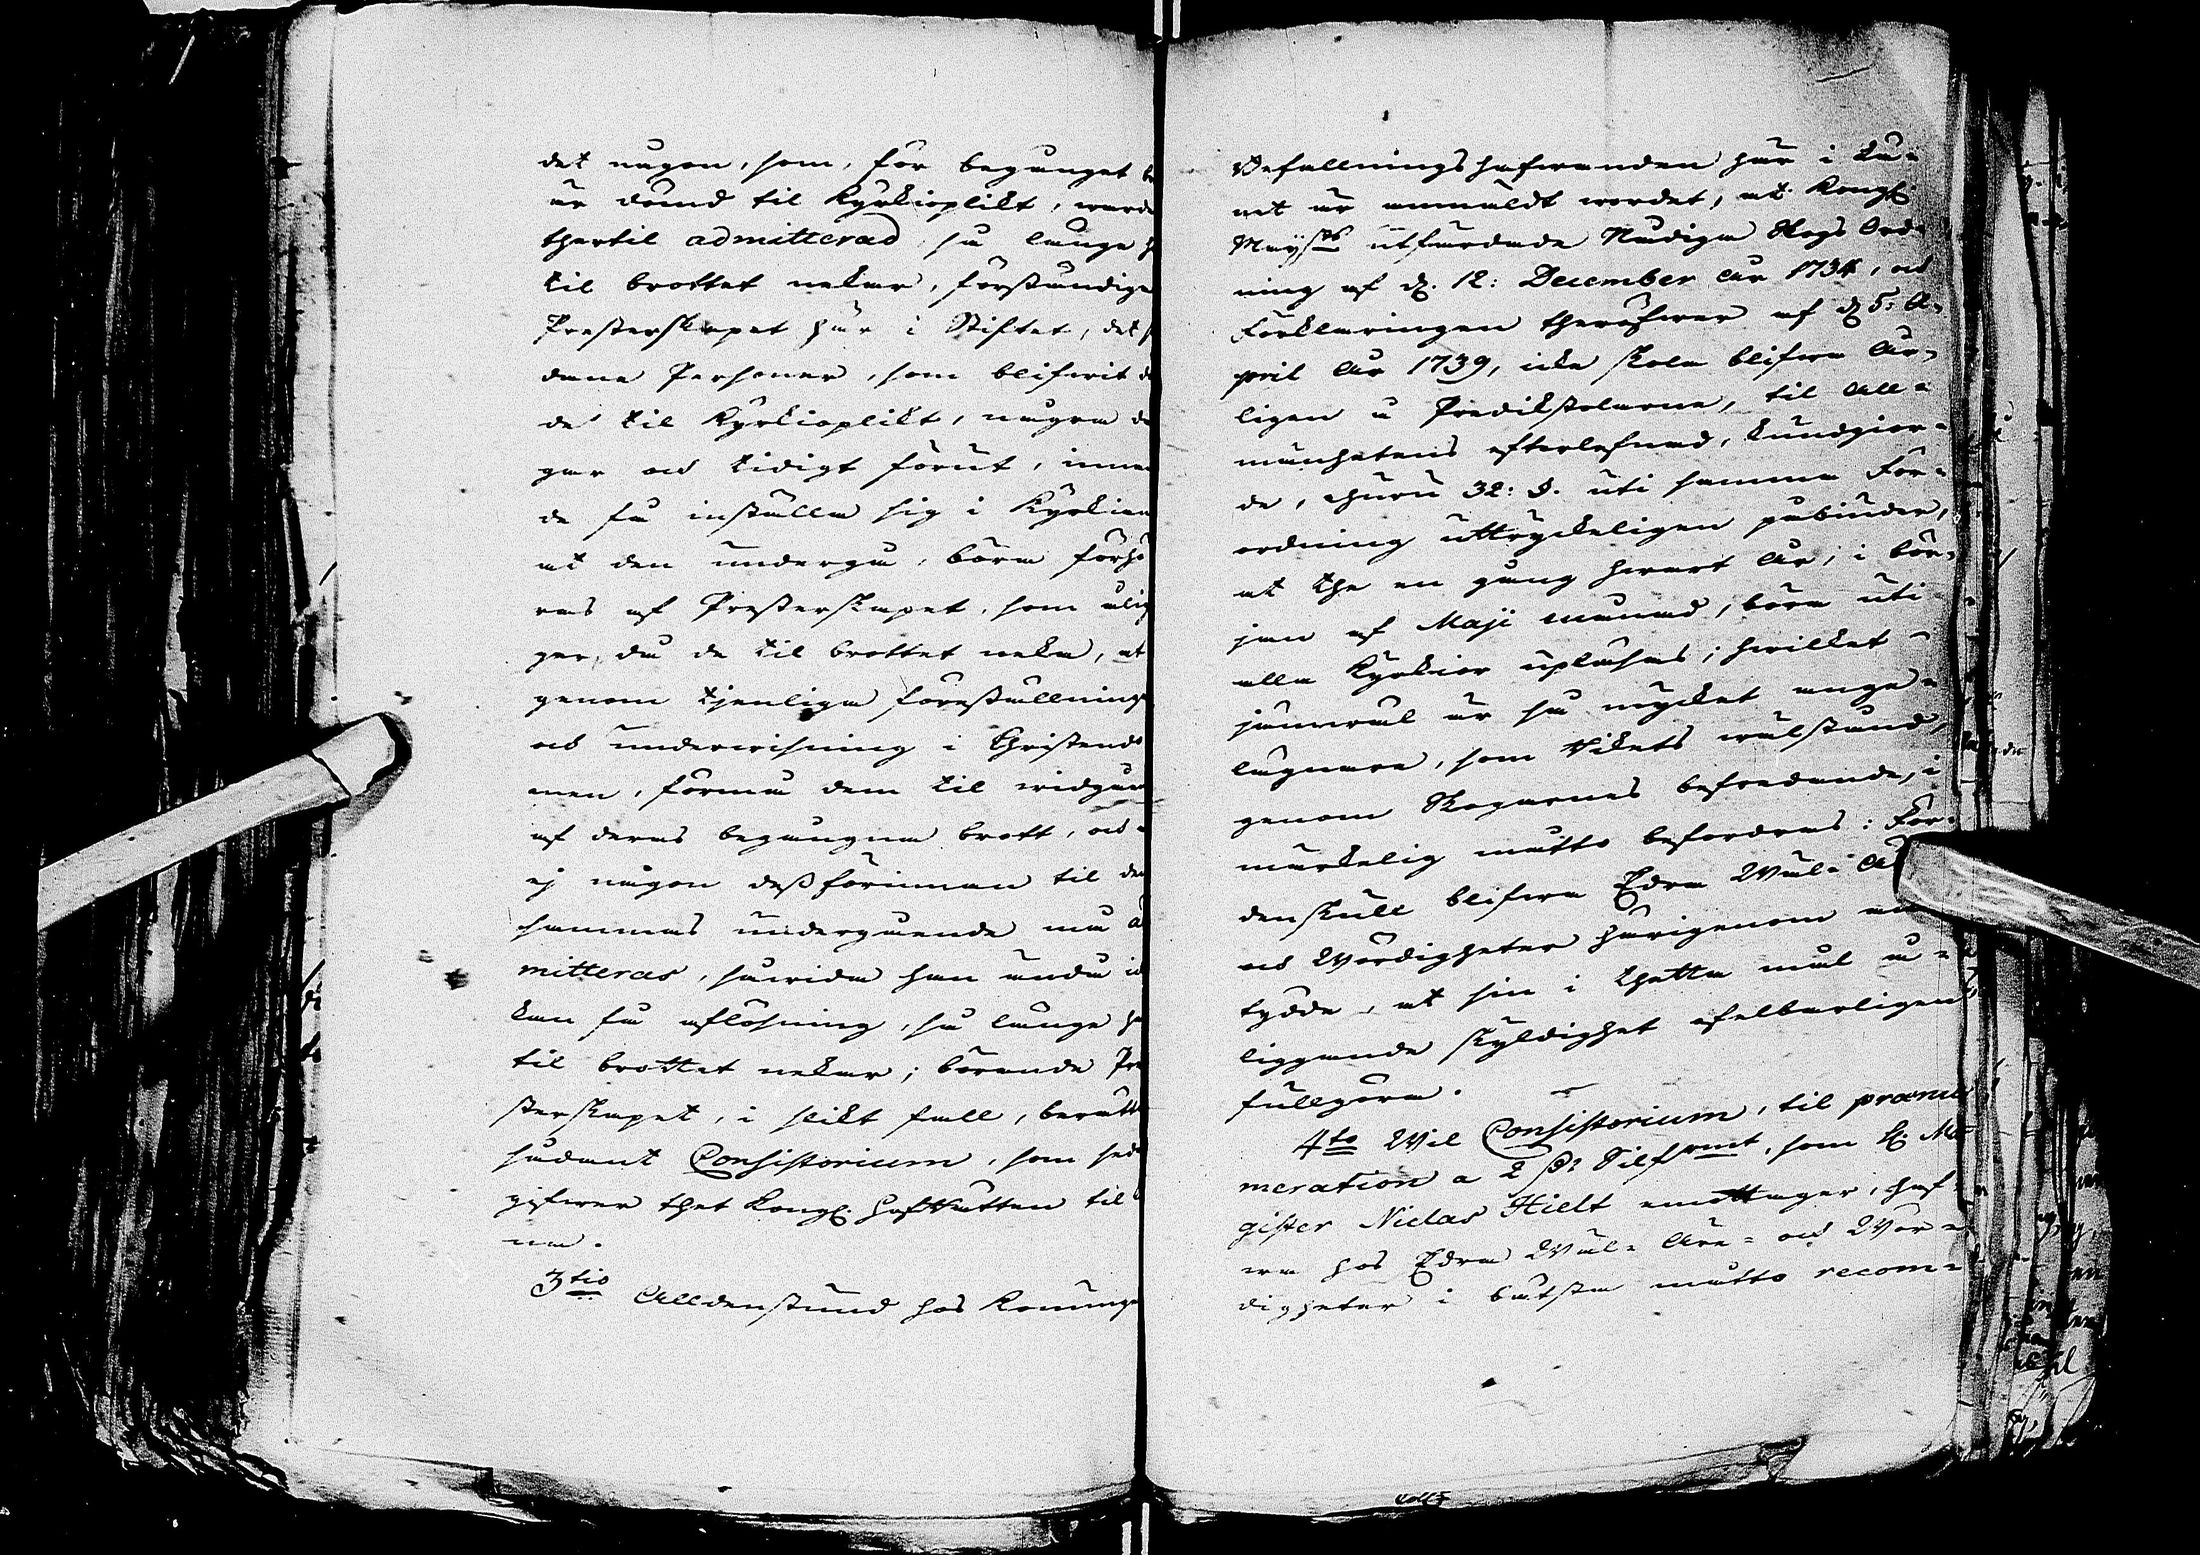 det någon, som, för begånget b
är dömd til Kyrkioplikt, warde
thertil admitterad så länge h
til brottet nekar, förständige
Presterskapet här i Stiftet, det s
dane Personer, som blifwit dö
de til Kyrkioplikt, några da
gar och tidigt förut, innan
de få inställa sig i Kyrkian
at den undergå, böra förhö
ras af Presterskapet, som ålig
ger, då de til brottet neka, at
genom tjenliga föreställninga
och underwisning i Christendo
men, förmå dem til widgån
af deras begångna brott, och
ej någon dessförinnan til de
sammas undergående må ad
mitteras, såwida han ändå ic
kan få aflösning, så länge ha
til brottet nekar; börande Pre
sterskapet, i slikt fall, berätt
sådant Consistorium, som sed
gifwer thet Kongl. Hofrätten til
na.
3tio Alldenstund hos Konunge
Befallningshafwanden här i Lä-
net är anmäldt wordet, at Kongl.
Maysts utfärdade Nådiga Skogs Ord
ning af d. 12: December År 1734, och
Förklaringen theröfwer af d 5: A-
pril År 1739, icke skola blifwa År-
ligen å Predikstolarne, til All-
mänhetens efterlefnad, kundgior-
de, ehuru 32: §. uti samma För-
ordning uttryckeligen påbiuder,
at the en gång hwart År, i bör-
jan af Maji månad, böra uti
alla Kyrkior upläsas; hwilket
jämwäl är så mycket ange-
lägnare, som Rikets wälstånd,
genom Skogarnes befredande, i
märkelig måtto befordras: För-
denskull blifwa Edra Wäl- Ä
och Wördigheter härigenom
tydde, at sin i thetta mål å-
liggande skyldighet ofelbarligen
fullgöra.
4to Wil Consistorium, til prænu
meration a 2 Dr Silfwmt, som H. Ma
gister Niclas Hielt emottager, haf-
wa hos Edra Wäl- Äre- och Wör-
digheter i bästa måtto recom-